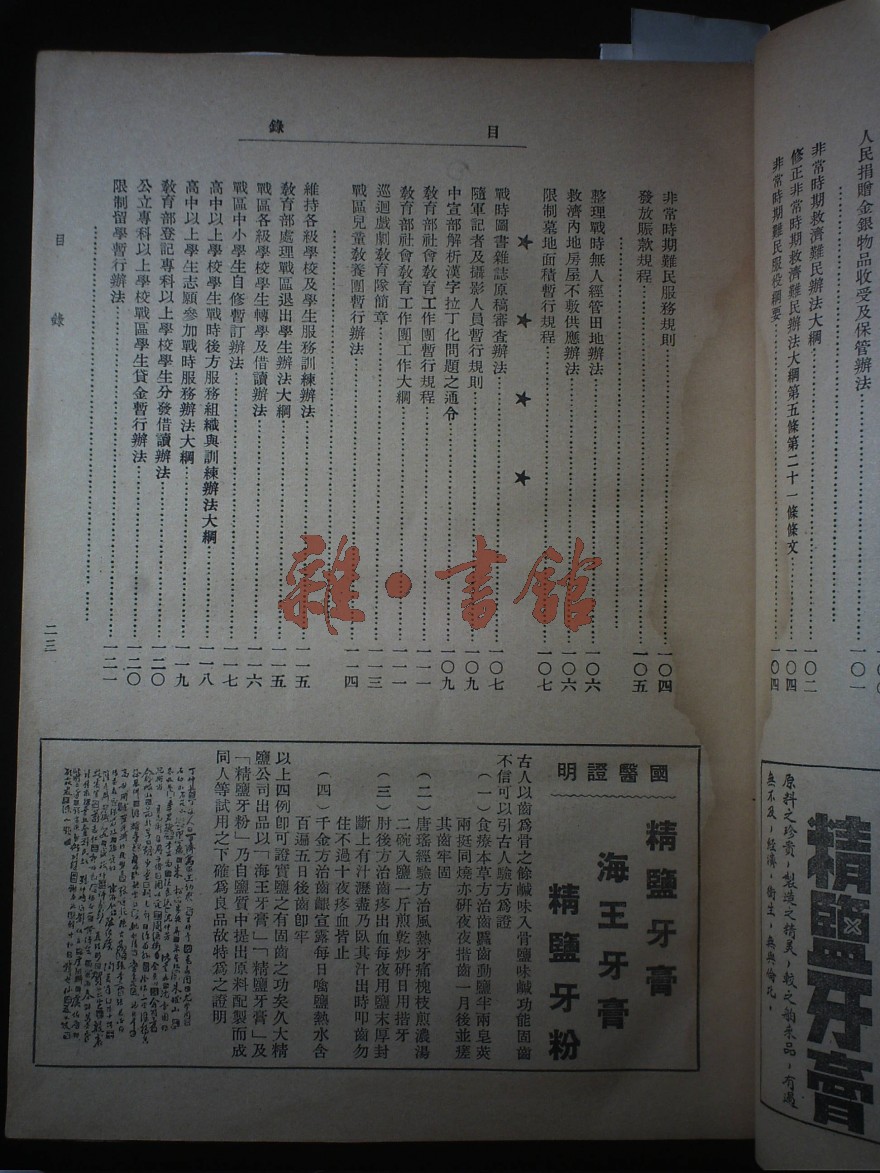 人民捐贈金銀物品收受及保管辦法
一〇一
非常時期救濟難民辦法大綱
一〇二
修正非常時期救濟難民辦法大綱第五條第二十一條條文
一〇四
非常時期難民服役綱要
一〇四
精鹽牙膏
原料之珍貴，製造之精美，較之舶來品，有過
無不及，經濟，衛生，無與倫比。
目錄
非常時期難民服務規則 一〇四
發放賬款規程 一〇五
整理戰時無人經管田地辦法 一〇六
救濟內地房屋不敷供應辦法 一〇六
限制墓地面積暫行規程 一〇七
★ ★ ★ ★
戰時圖書雜誌原稿審查辦法 一〇七
隨軍記者及攝影人員暫行規則 一〇九
中宣部解析漢字拉丁化問題之通令 一〇九
教育部社會教育工作團暫行規程 一一一
教育部社會教育工作團工作大綱 一一一
巡迴戲劇教育隊簡章 一一三
戰區兒童教養團暫行辦法 一一四
維持各級學校及學生服務訓練辦法 一一五
教育部處理戰區退出學生辦法大綱 一一五
戰區各級學校學生轉學及借讀辦法 一一六
戰區中小學生自修暫訂辦法 一一七
高中以上學校學生戰時後方服務組織與訓練辦法大綱 一一八
高中以上學生志願參加戰時服務辦法大綱 一一九
教育部登記專科以上學校學生分發借讀辦法 一二〇
公立專科以上學校戰區學生貸金暫行辦法 一二〇
限制留學暫行辦法 一二一
目錄
二三
雜·書館
國醫證明
精鹽牙膏
海王牙膏
精鹽牙粉
古人以齒爲骨之餘鹹味入骨鹽味鹹功能固齒
不信可以引古人驗方爲證
（一）食療本草方治齒䘌齒動鹽半兩皂莢
兩挺同燒赤研夜夜揩齒一月後並瘥
其齒牢固
（二）唐瑤經驗方治風熱牙痛槐枝煎濃湯
二碗入鹽一斤煎乾炒研日用揩牙
（三）肘後方治齒疼出血每夜用鹽末厚封
齗上有汁瀝盡乃臥其汁出時叩齒勿
住不過十夜疼血皆止
（四）千金方治齒齦宣露每日噙鹽熱水含
百遍五日後齒卽牢
以上四例卽可證實鹽之有固齒之功矣久大精
鹽公司出品以「海王牙膏」「精鹽牙膏」及
「精鹽牙粉」乃自鹽質中提出原料配製而成
同人等試用之下確爲良品故特爲之證明